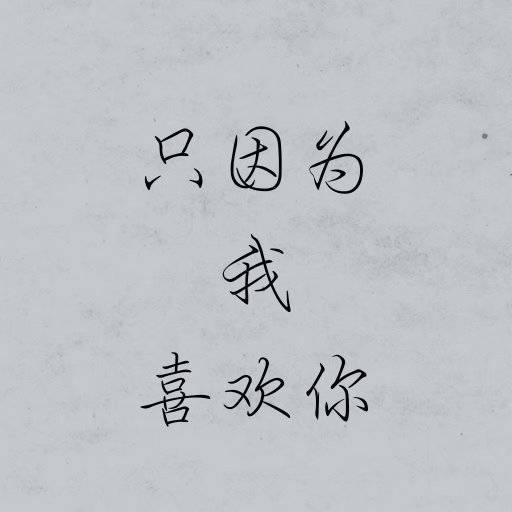 只因为
我
喜欢你